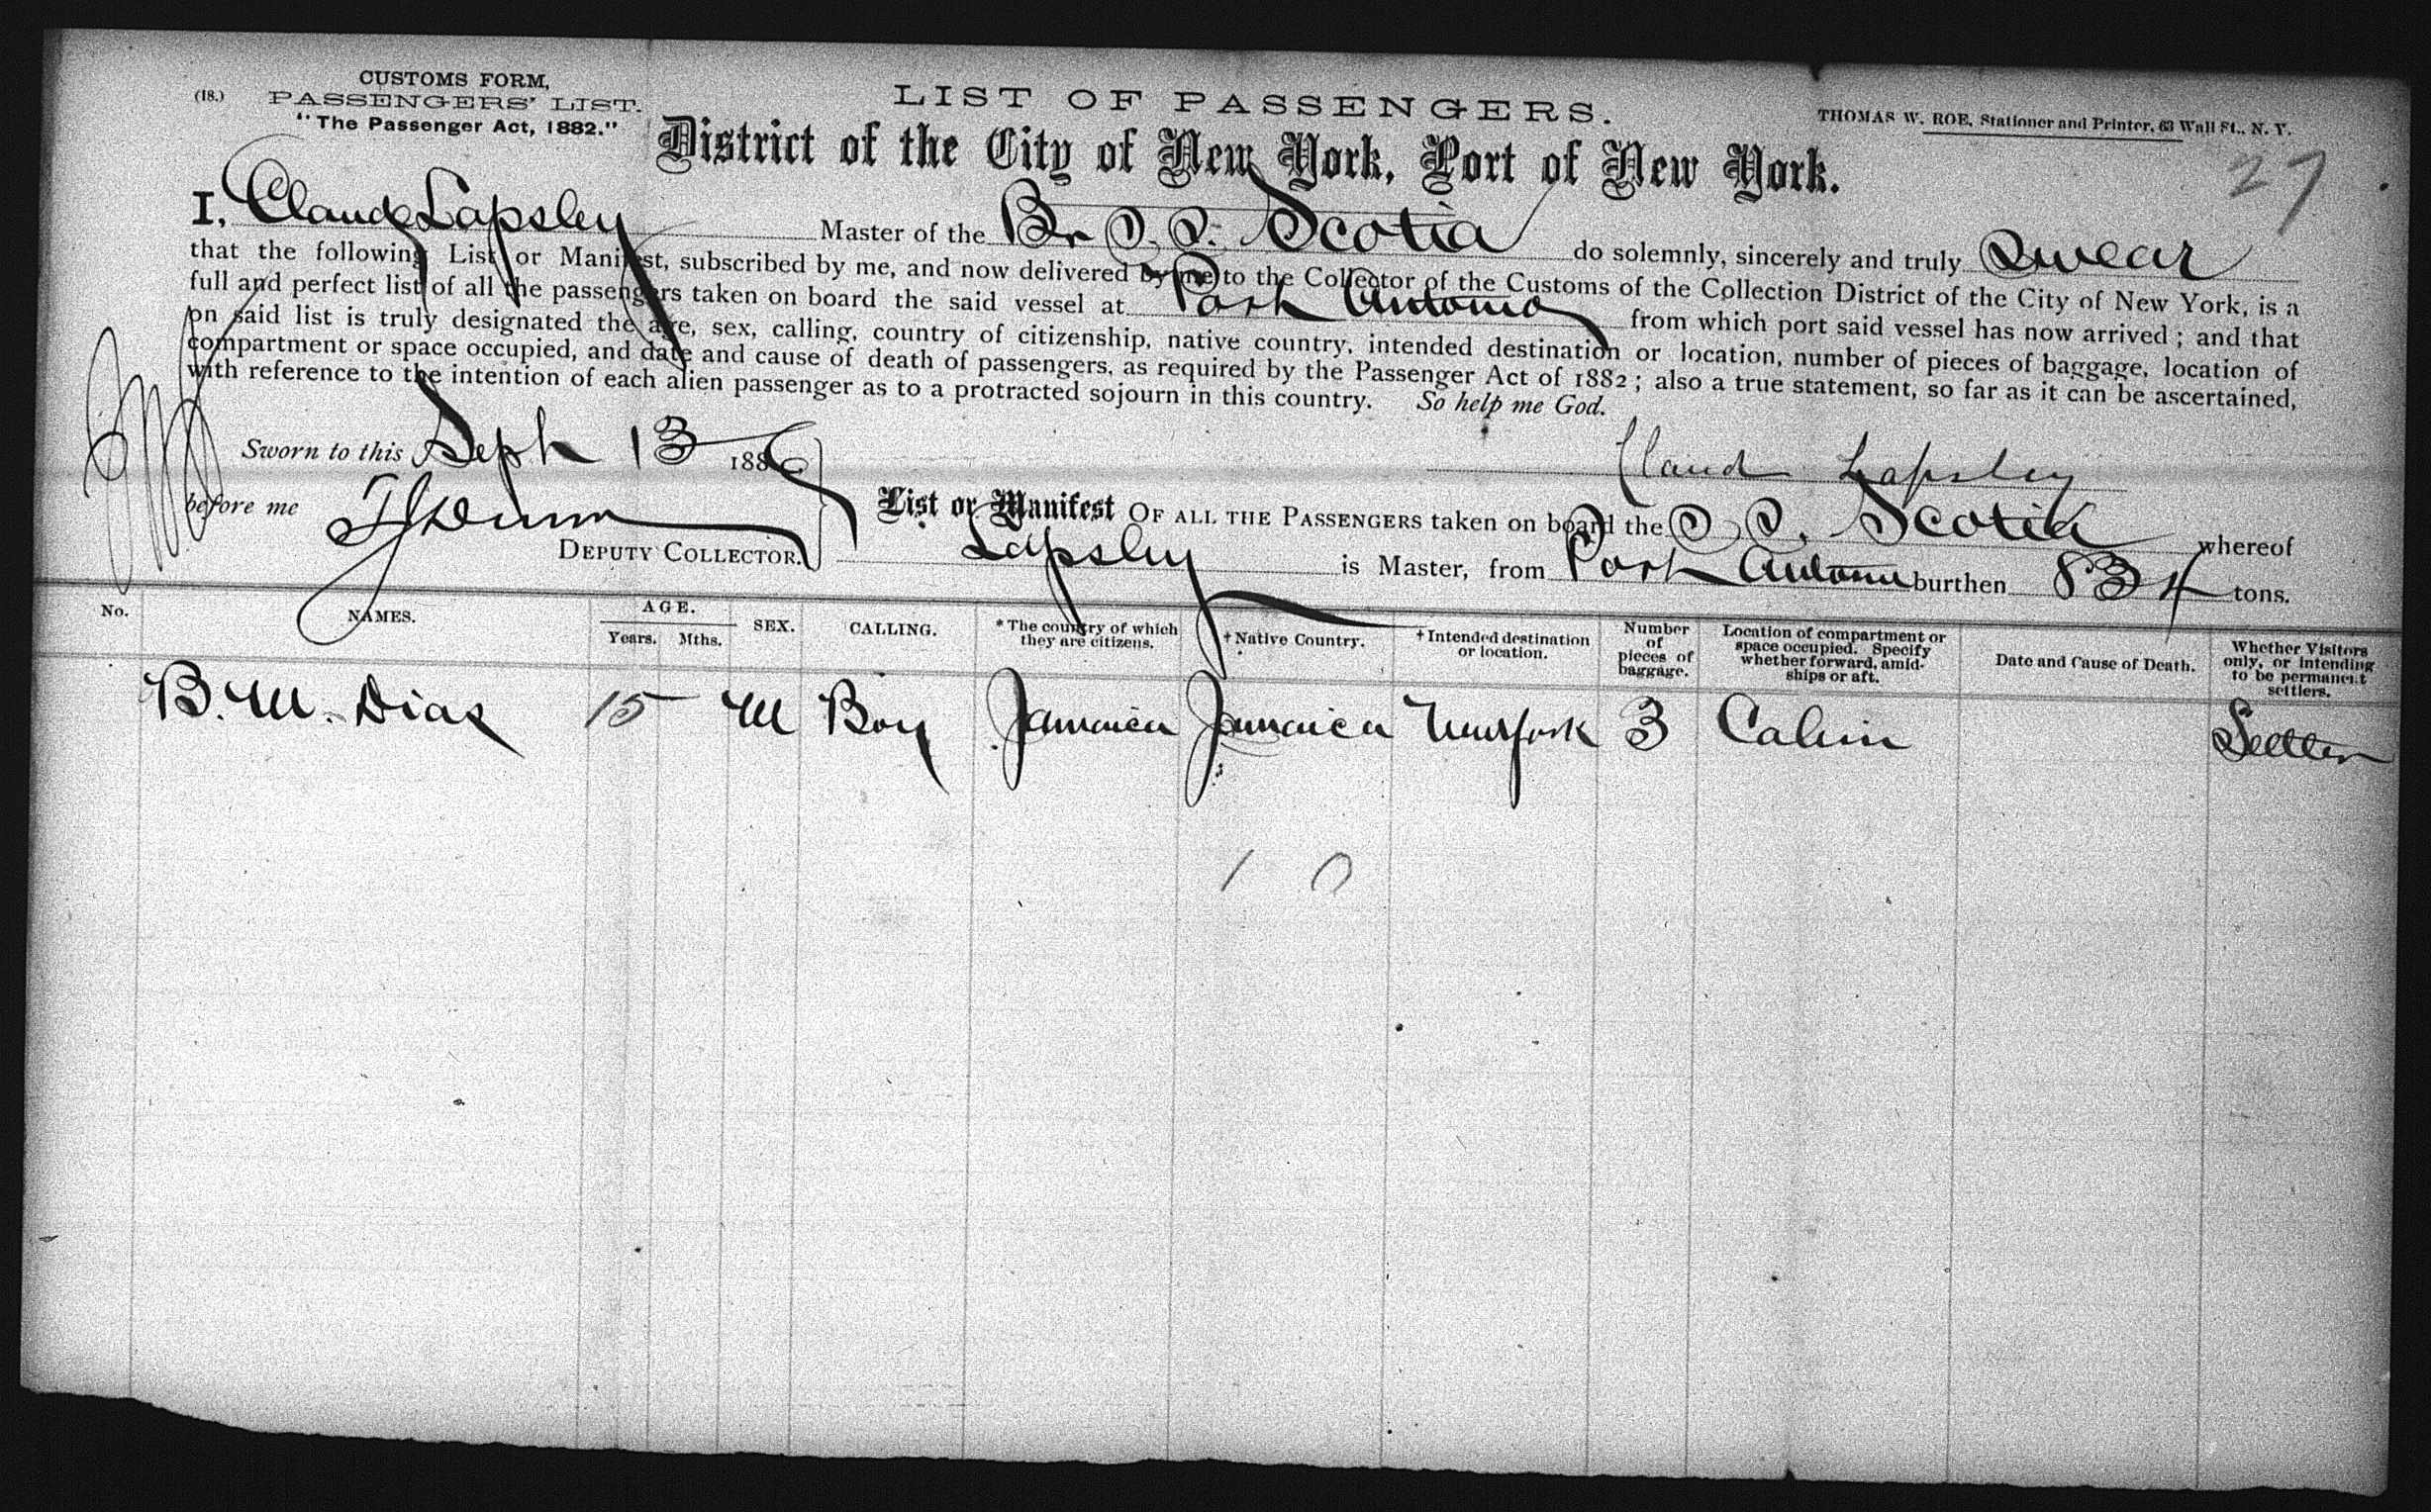 CUSTOMS FORM,
(18.) PASSENGERS' LIST.
"The Passenger Act, 1882."
LIST OF PASSENGERS.
THOMAS W. ROE, Stationer and Printer, 63 Wall St., N. Y.
District of the City of New York, Port of New York.
27
I, Claude Lapsley Master of the Br S. S. Scotia do solemnly, sincerely and truly Swear
that the following List or Manifest, subscribed by me, and now delivered by me to the Collector of the Customs of the Collection District of the City of New York, is a
full and perfect list of all the passengers taken on board the said vessel at Port Antonio from which port said vessel has now arrived; and that
on said list is truly designated the age, sex, calling, country of citizenship, native country, intended destination or location, number of pieces of baggage, location of
compartment or space occupied, and date and cause of death of passengers, as required by the Passenger Act of 1882; also a true statement, so far as it can be ascertained,
with reference to the intention of each alien passenger as to a protracted sojourn in this country. So help me God.
Sworn to this Sept 13 1886
Claud Lapsley
before me
DEPUTY COLLECTOR.
List or Manifest OF ALL THE PASSENGERS taken on board the S. S. Scotia whereof
Lapsley is Master, from Port Antonio burthen 834 tons.
No. NAMES. AGE. Years. Mths. SEX. CALLING. *The country of which they are citizens. †Native Country. †Intended destination or location. Number of pieces of baggage. Location of compartment or space occupied. Specify whether forward, amidships or aft. Date and Cause of Death. Whether Visitors only, or intending to be permanent settlers.
B. M. Dias 15 M Boy Jamaica Jamaica New York 3 Cabin Settler
1 0